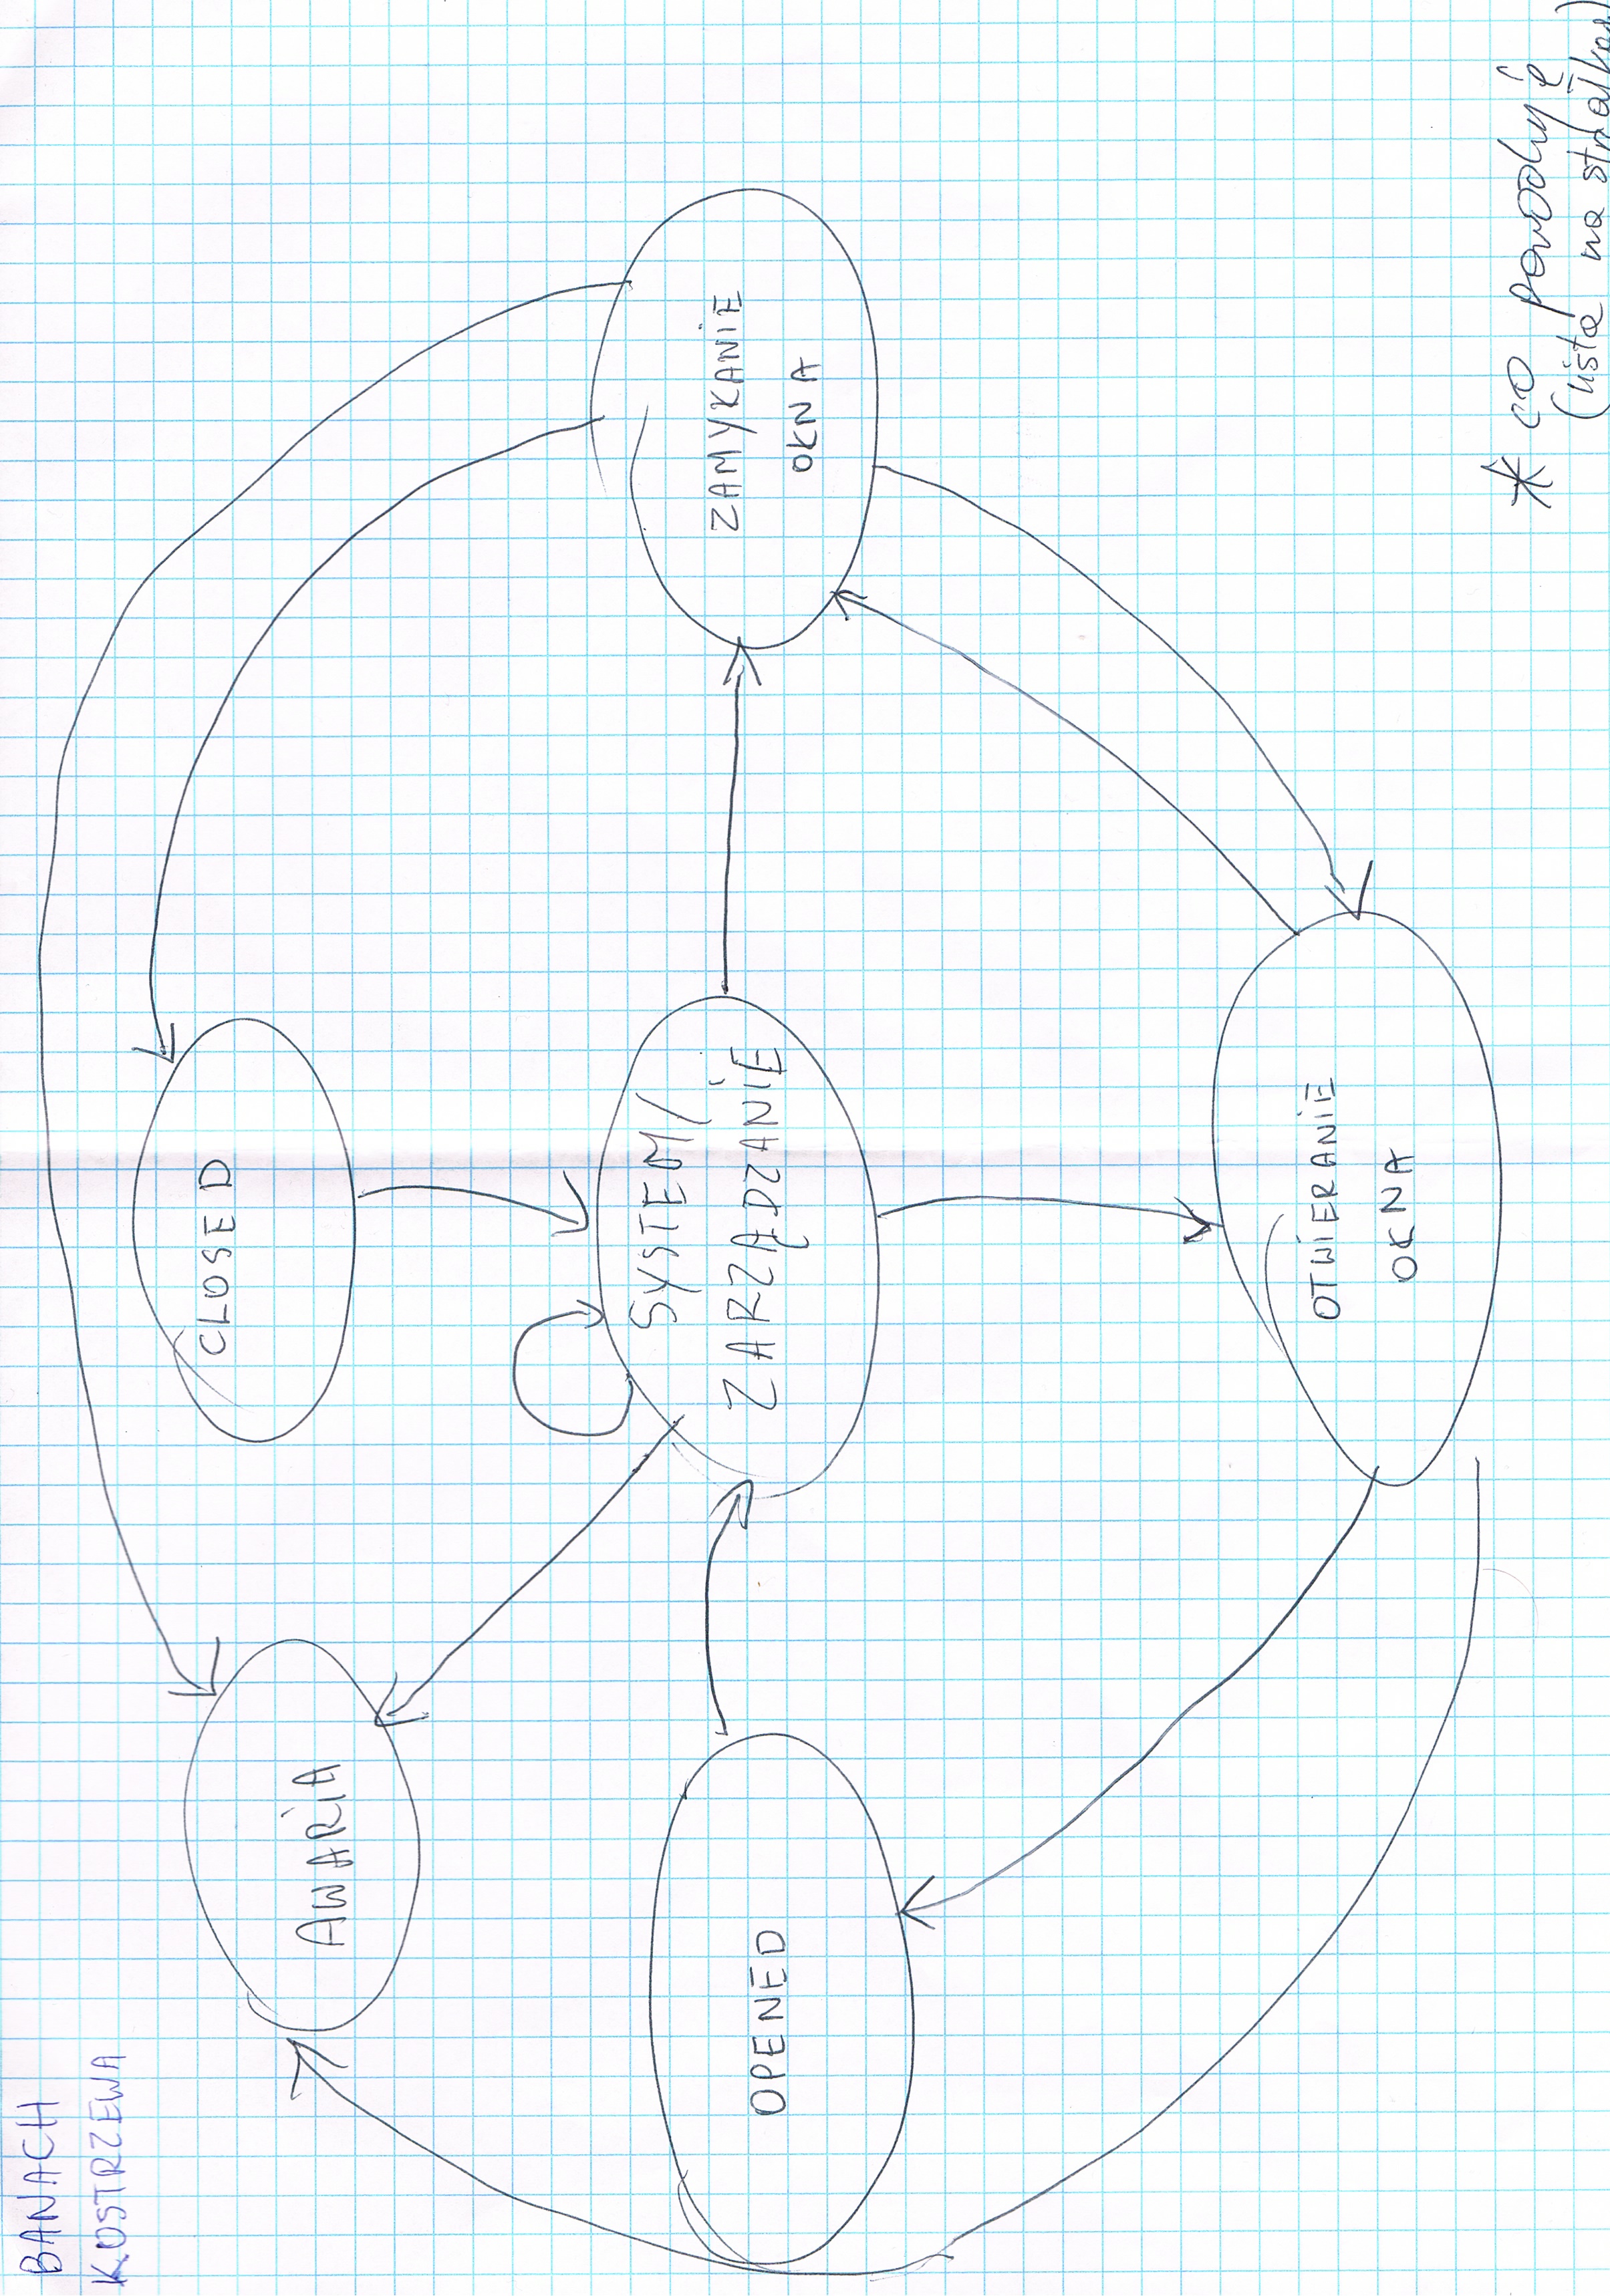 BANACH
KOSTRZEWA
CLOSED
AWARiA
SYSTEM/
ZARZĄDZANiE
OPENED
ZAMYKANiE
OKNA
OTWiERANiE
OKNA
* co powoduje
(lista na